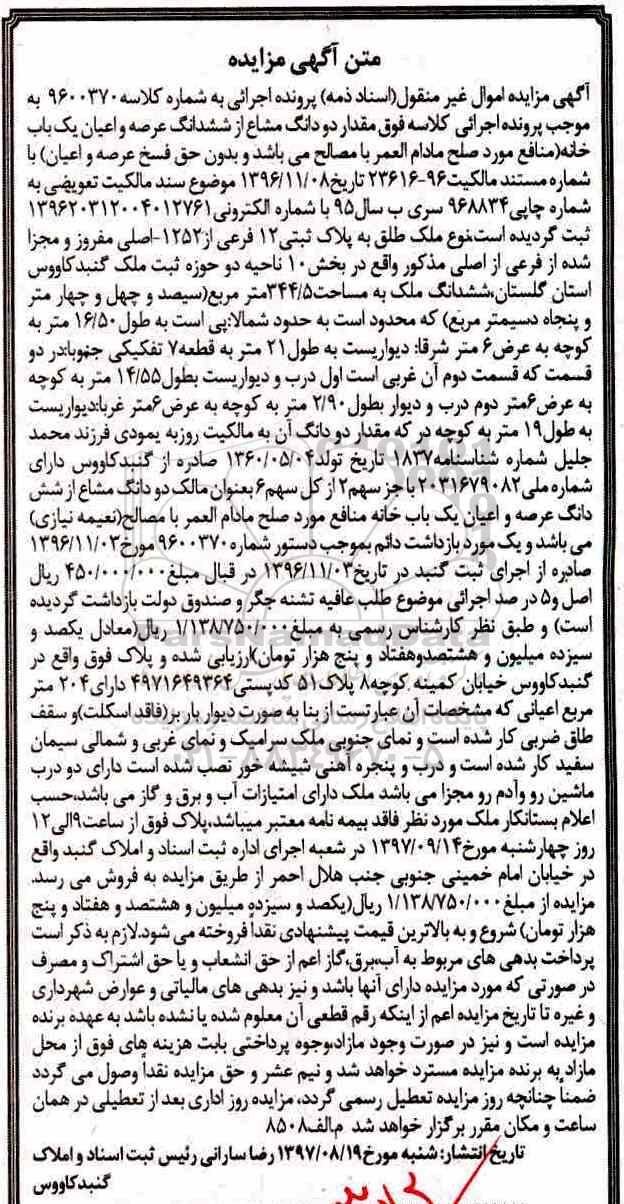 متن آگهی مزایده
آگهی مزایده اموال غیر منقول(اسناد ذمه) پرونده اجرائی به شماره کلاسه۹۶۰۰۳۷۰ به
موجب پرونده اجرائی کلاسه فوق مقدار دو دانگ مشاع از ششدانگ عرصه و اعیان یک باب
خانه(منافع مورد صلح مادام العمر با مصالح می باشد و بدون حق فسخ عرصه و اعیان) با
شماره مستند مالکیت۹۶-۲۳۶۱۶ تاریخ۱۳۹۶/۱۱/۰۸ موضوع سند مالکیت تعویضی به
شماره چاپی۹۶۸۸۳۴ سری ب سال۹۵ با شماره الکترونی۱۳۹۶۲۰۳۱۲۰۰۴۰۱۲۷۶۱
ثبت گردیده است،نوع ملک طلق به پلاک ثبتی۱۲ فرعی از۱۲۵۲-اصلی مفروز و مجزا
شده از فرعی از اصلی مذکور واقع در بخش۱۰ ناحیه دو حوزه ثبت ملک گنبدکاووس
استان گلستان،ششدانگ ملک به مساحت۳۴۴/۵متر مربع(سیصد و چهل و چهار متر
و پنجاه دسیمتر مربع) که محدود است به حدود شمالا:پی است به طول۱۶/۵۰ متر به
کوچه به عرض۶ متر شرقا: دیواریست به طول۲۱ متر به قطعه۷ تفکیکی جنوبا:در دو
قسمت که قسمت دوم آن غربی است اول درب و دیواریست بطول۱۴/۵۵ متر به کوچه
به عرض۶متر دوم درب و دیوار بطول۲/۹۰ متر به کوچه به عرض۶متر غربا:دیواریست
به طول۱۹ متر به کوچه در که مقدار دو دانگ آن به مالکیت روزبه یمودی فرزند محمد
جلیل شماره شناسنامه۱۸۳۷ تاریخ تولد۱۳۶۰/۰۵/۰۴ صادره از گنبدکاووس دارای
شماره ملی۲۰۳۱۶۷۹۰۸۲ با جز سهم۲ از کل سهم۶ بعنوان مالک دو دانگ مشاع از شش
دانگ عرصه و اعیان یک باب خانه منافع مورد صلح مادام العمر با مصالح(نعیمه نیازی)
می باشد و یک مورد بازداشت دائم بموجب دستور شماره۹۶۰۰۳۷۰ مورخ۱۳۹۶/۱۱/۰۳
صادره از اجرای ثبت گنبد در تاریخ۱۳۹۶/۱۱/۰۳ در قبال مبلغ۴۵۰/۰۰۰/۰۰۰ ریال
اصل و۵ در صد اجرائی موضوع طلب عافیه تشنه جگر و صندوق دولت بازداشت گردیده
است) و طبق نظر کارشناس رسمی به مبلغ۱/۱۳۸/۷۵۰/۰۰۰ ریال(معادل یکصد و
سیزده میلیون و هشتصدوهفتاد و پنج هزار تومان)ارزیابی شده و پلاک فوق واقع در
گنبدکاووس خیابان کمینه کوچه۸ پلاک۵۱ کدپستی۴۹۷۱۶۴۹۳۶۴ دارای۲۰۴ متر
مربع اعیانی که مشخصات آن عبارتست از بنا به صورت دیوار بار بر(فاقد اسکلت)و سقف
طاق ضربی کار شده است و نمای جنوبی ملک سرامیک و نمای غربی و شمالی سیمان
سفید کار شده است و درب و پنجره آهنی شیشه خور نصب شده است دارای دو درب
ماشین رو وآدم رو مجزا می باشد ملک دارای امتیازات آب و برق و گاز می باشد،حسب
اعلام بستانکار ملک مورد نظر فاقد بیمه نامه معتبر میباشد،پلاک فوق از ساعت۹الی۱۲
روز چهارشنبه مورخ۱۳۹۷/۰۹/۱۴ در شعبه اجرای اداره ثبت اسناد و املاک گنبد واقع
در خیابان امام خمینی جنوبی جنب هلال احمر از طریق مزایده به فروش می رسد.
مزایده از مبلغ۱/۱۳۸/۷۵۰/۰۰۰ ریال(یکصد و سیزده میلیون و هشتصد و هفتاد و پنج
هزار تومان) شروع و به بالاترین قیمت پیشنهادی نقداً فروخته می شود.لازم به ذکر است
پرداخت بدهی های مربوط به آب،برق،گاز اعم از حق انشعاب و یا حق اشتراک و مصرف
در صورتی که مورد مزایده دارای آنها باشد و نیز بدهی های مالیاتی و عوارض شهرداری
و غیره تا تاریخ مزایده اعم از اینکه رقم قطعی آن معلوم شده یا نشده باشد به عهده برنده
مزایده است و نیز در صورت وجود مازاد،وجوه پرداختی بابت هزینه های فوق از محل
مازاد به برنده مزایده مسترد خواهد شد و نیم عشر و حق مزایده نقداً وصول می گردد
ضمناً چنانچه روز مزایده تعطیل رسمی گردد، مزایده روز اداری بعد از تعطیلی در همان
ساعت و مکان مقرر برگزار خواهد شد م.الف۸۵۰۸
تاریخ انتشار: شنبه مورخ۱۳۹۷/۰۸/۱۹ رضا سارانی رئیس ثبت اسناد و املاک
گنبدکاووس
ParsNamadData
۰۲۱-۸۸۳۴۹۶۷۰-۵